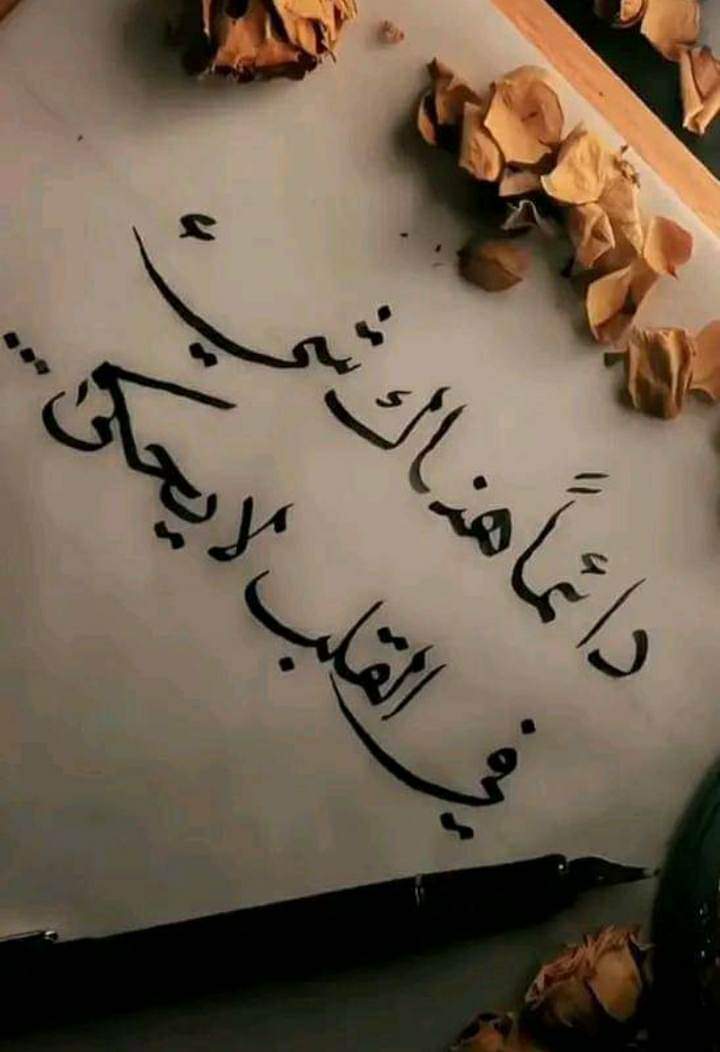 دائماً هناك شيئ
في القلب لا يحكى...